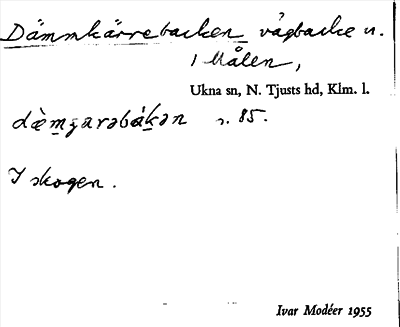 Dämmkärrebacken vägbacke n.
1 Målen,
Ukna sn, N. Tjusts hd, Klm. l.
dæ̀mʒarəbákən s. 85.
I skogen.
Ivar Modéer 1955